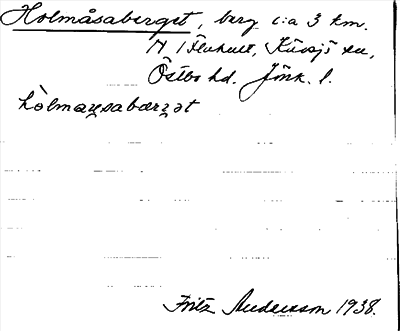 Holmåsaberget, berg c:a 3 km.
N Flenhult, Kävsjö sn,
Östbo hd. Jönk. l.
hòlmaʋsabærʒət
Fritz Andersson 1938.